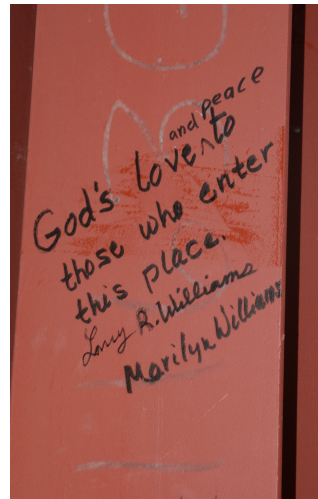 God's love and peace to
those who enter
this place.
Larry R. Williams
Marilyn Williams